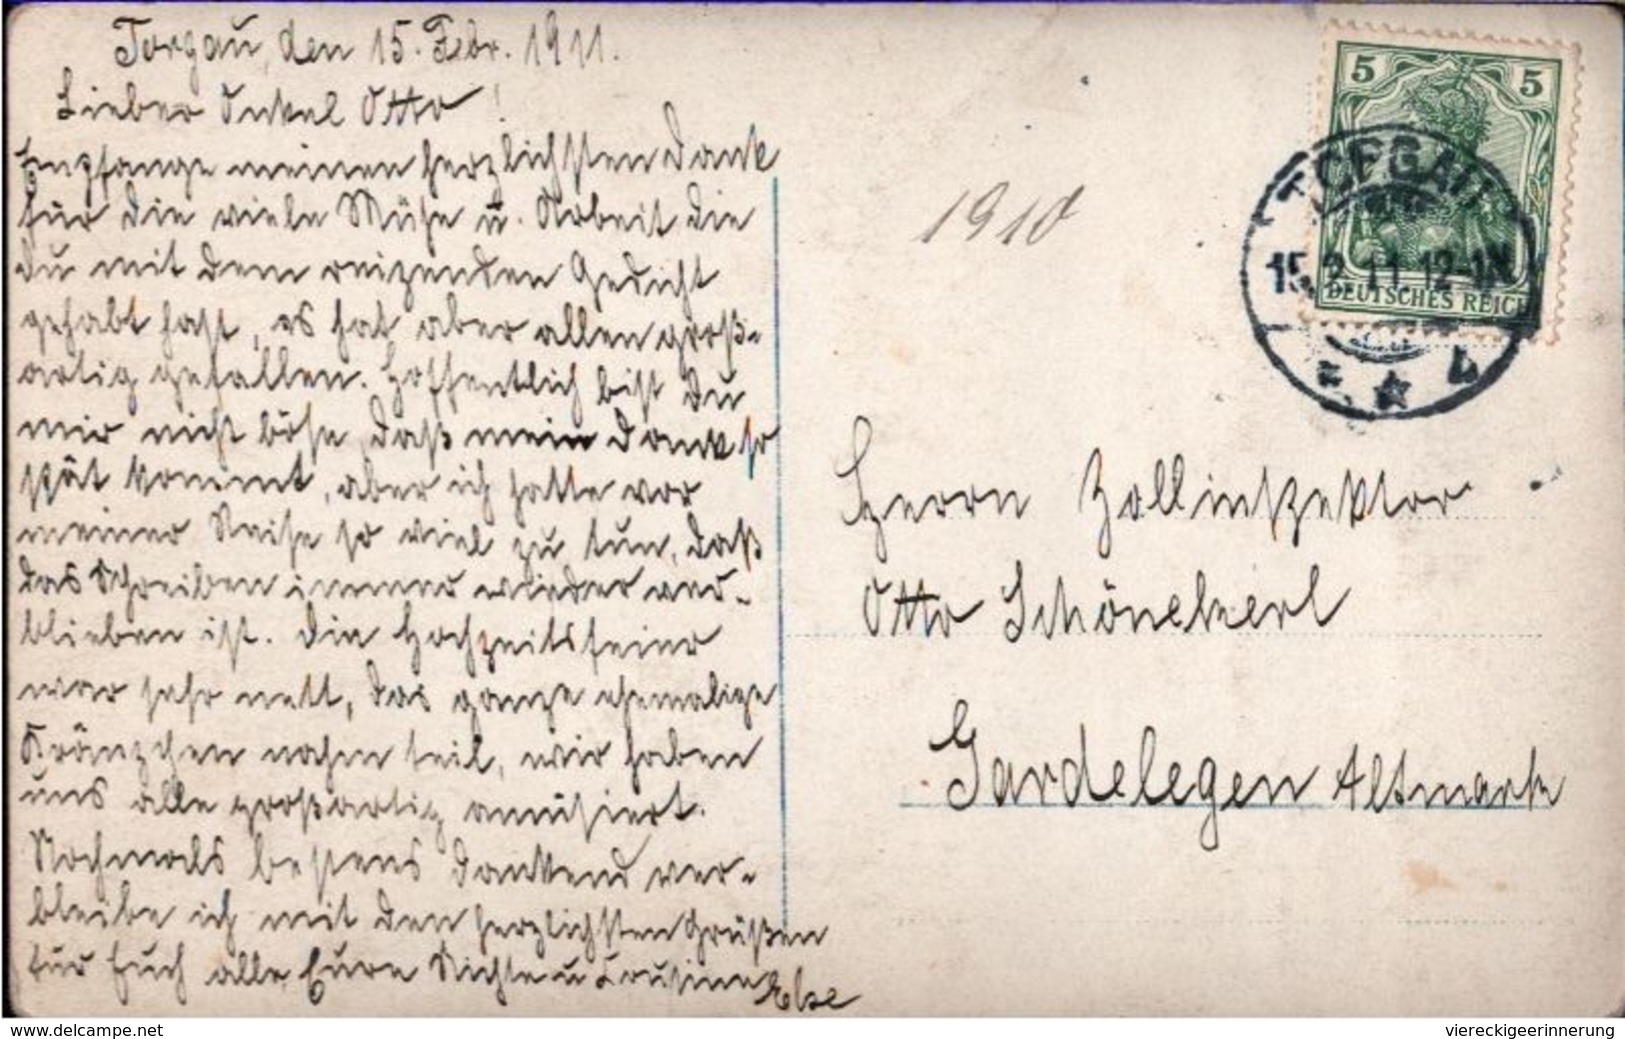 Torgau, den 15. Febr. 1911.
Lieber Onkel Otto!
Empfange meinen herzlichsten Dank
für die viele Mühe u. Arbeit die
du mit dem reizenden Gedicht
gehabt hast, es hat aber allen groß-
artig gefallen. Hoffentlich bist Du
mir nicht böse, daß mein Dank so
spät kommt, aber ich hatte vor
meiner Reise so viel zu tun, daß
das Schreiben immer wieder unter-
blieben ist. Die Hochzeitsfeier
war sehr nett, das ganze ehemalige
Kränzchen nahm teil, wir haben
uns alle großartig amüsiert.
Nochmals bestens dankend ver-
bleibe ich mit den herzlichsten Grüßen
für Euch alle Eure Nichte u Cousine
Else
1910
5 5
DEUTSCHES REICH
TORGAU
15.2.11.12-1N
* b
Herrn Zollinspektor
Otto Schönekerl
Gardelegen Altmark
www.delcampe.net
viereckigeerinnerung